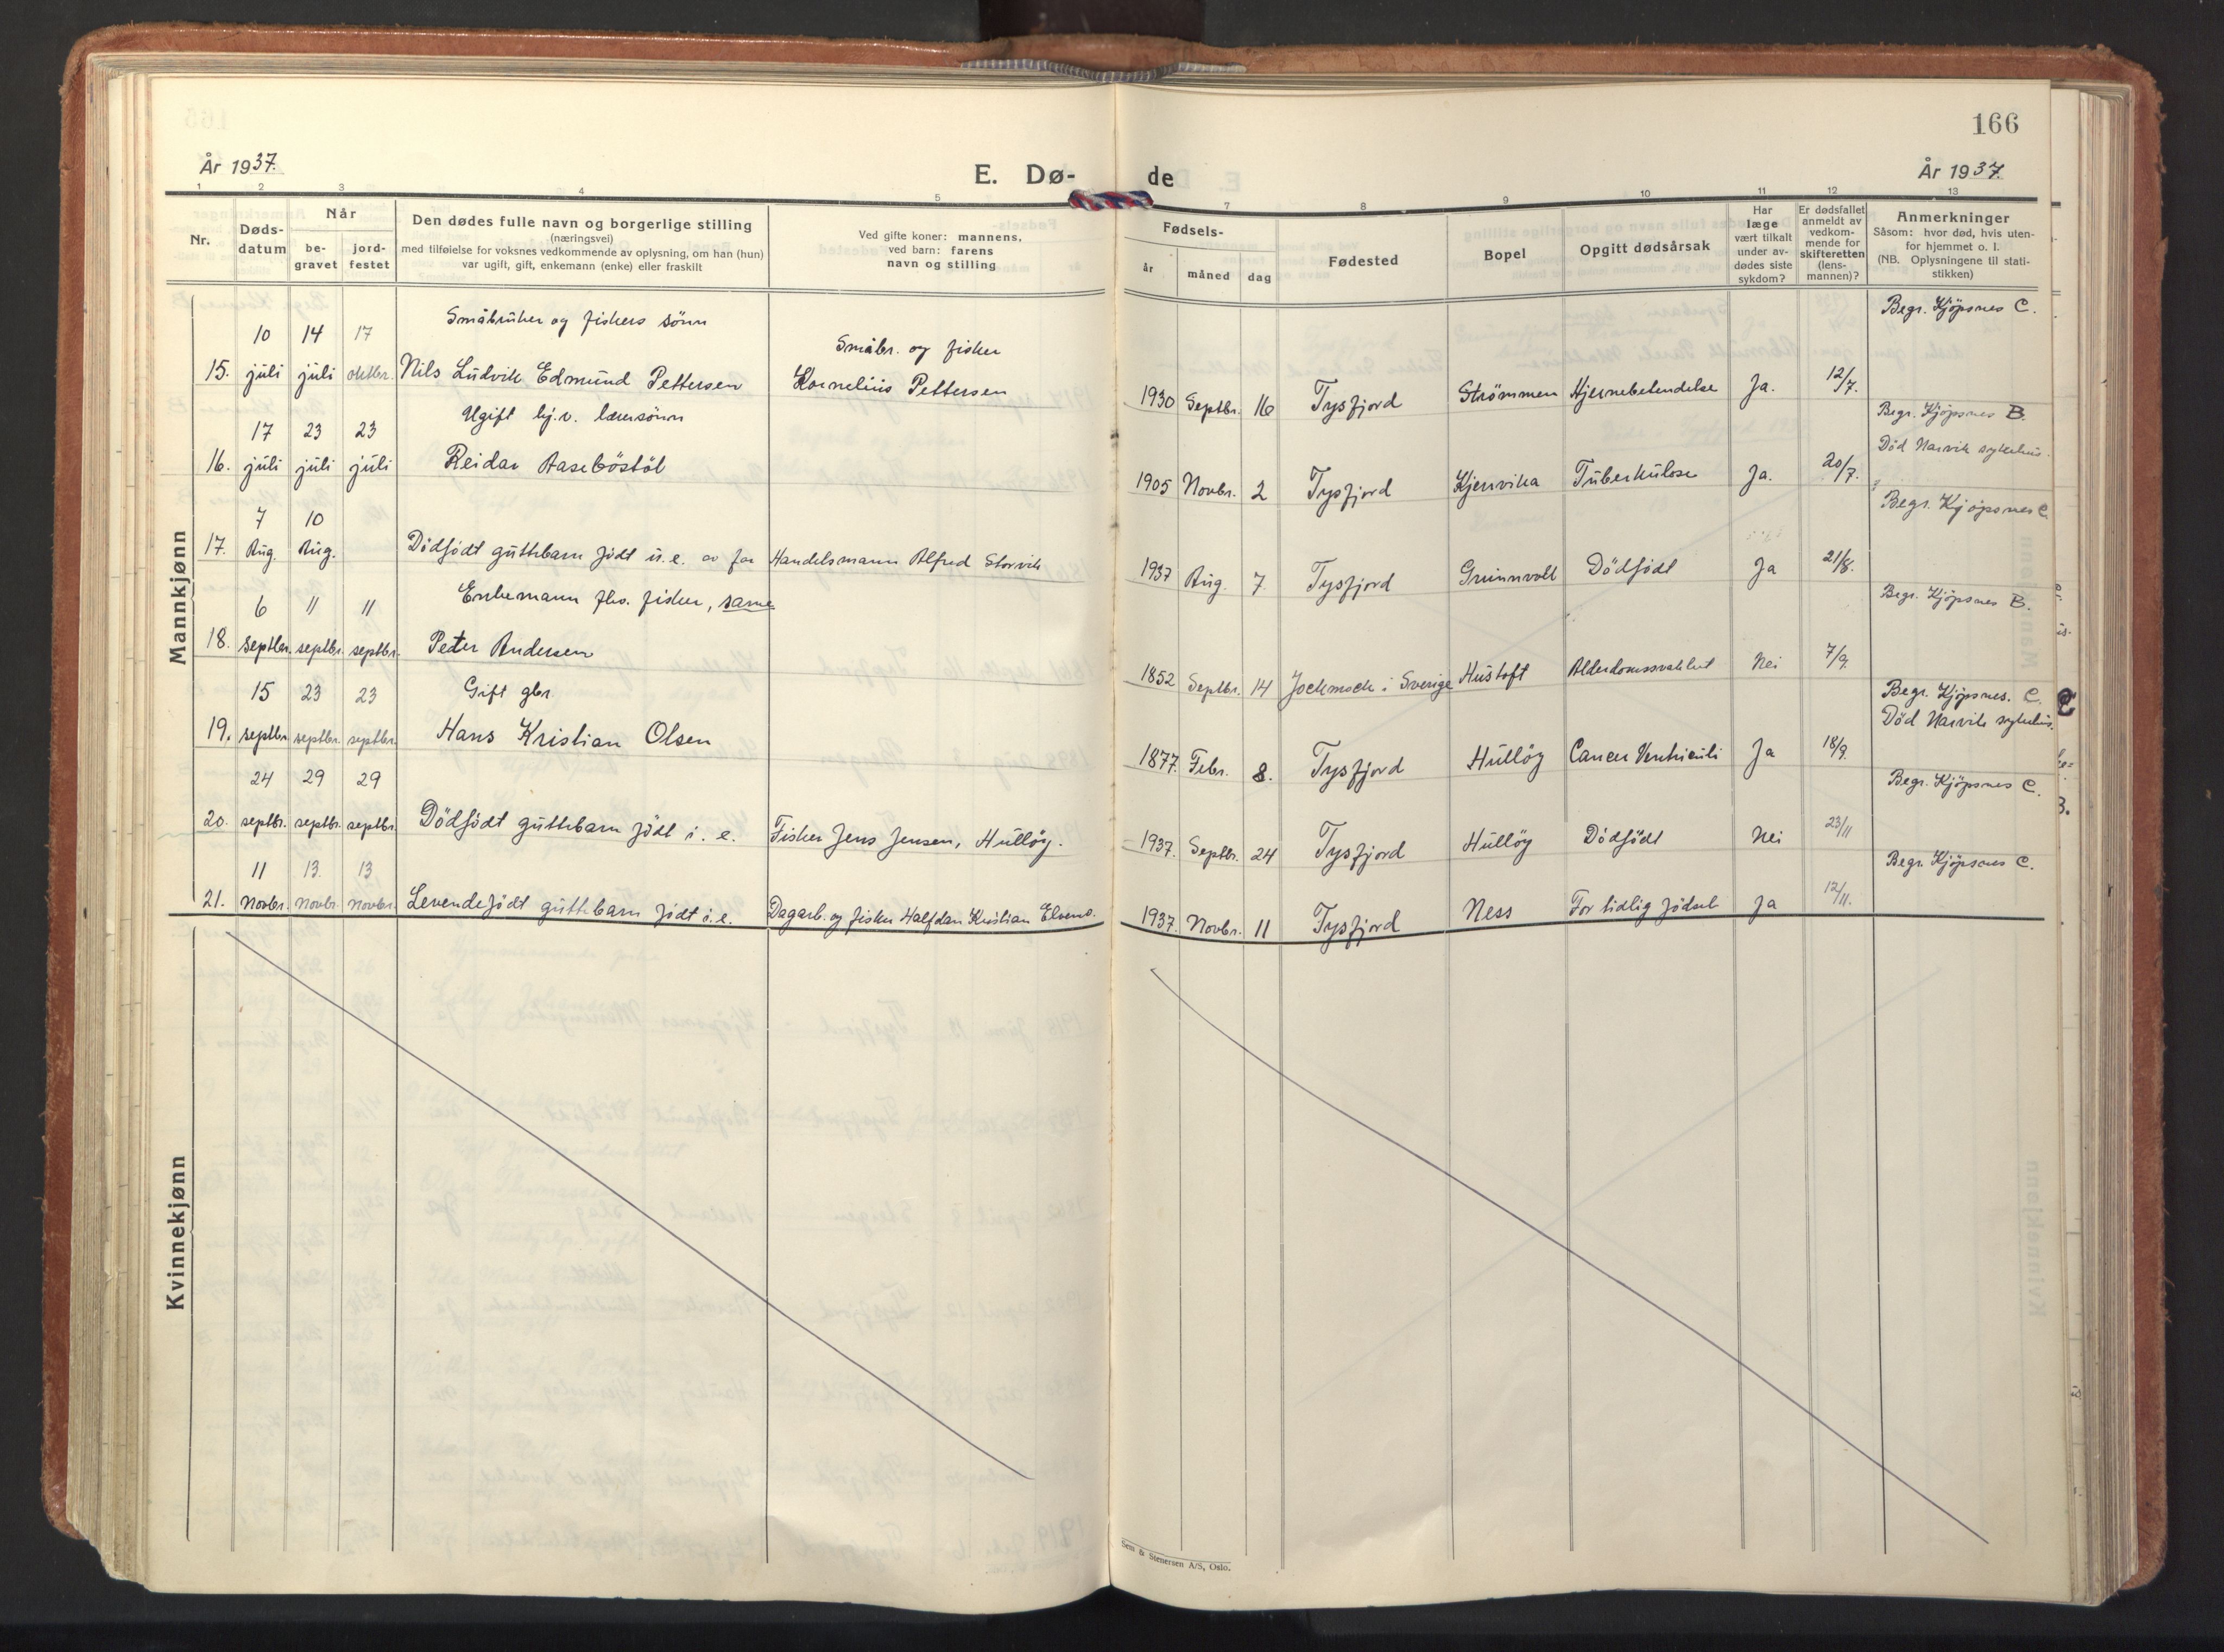 166
År 1937.
E. Dø-
de
År 1937.
1 2 3 4 5
7 8 9 10 11 12 13
Nr.
Døds-
datum
Når
be-
gravet
jord-
festet
Den dødes fulle navn og borgerlige stilling
(næringsvei)
med tilføielse for voksnes vedkommende av oplysning, om han (hun)
var ugift, gift, enkemann (enke) eller fraskilt
Ved gifte koner: mannens,
ved barn: farens
navn og stilling
Fødsels-
år
måned
dag
Fødested
Bopel
Opgitt dødsårsak
Har
læge
vært tilkalt
under av-
dødes siste
sykdom?
Er dødsfallet
anmeldt av
vedkom-
mende for
skifteretten
(lens-
mannen)?
Anmerkninger
Såsom: hvor død, hvis uten-
for hjemmet o. l.
(NB. Oplysningene til stati-
stikken)
Mannkjønn
Småbruker og fiskers sönn
Småbr. og fisker
Begr. Kjöpsnes C.
10 14 17
15. juli juli oktbr. Nils Ludvik Edmund Pettersen Kornelius Pettersen 1930 Septbr. 16 Tysfjord Strömmen Hjernebetendelse Ja. 12/7.
Ugift hj.v. lærersönn
Begr. Kjöpsnes B.
17 23 23
Död Narvik sykehus.
16. juli juli juli Reidar Aaseböstöl 1905 Novbr. 2 Tysfjord Kjervika Tuberkulose Ja. 20/7.
Begr. Kjöpsnes C.
7 10
17. Aug. Aug. Dödfödt guttebarn födt u.e. av far Handelsmann Alfred Storvik 1937 Aug. 7. Tysfjord Grunnvoll Dödfödt Ja 21/8.
Enkemann fho. fisker, same
Begr. Kjöpsnes B.
6 11 11
18. septbr. septbr. septbr. Peder Andersen 1852 Septbr. 14 Jockmock i Sverige Hustoft Alderdomssvakhet Nei 7/9.
Gift gbr.
Begr. Kjöpsnes. C.
15 23 23
Död Narvik sykehus.
19. septbr. septbr. septbr. Hans Kristian Olsen 1877. Febr. 8. Tysfjord Hullöy Cancer Ventriculi Ja 18/9.
24 29 29
Begr. Kjöpsnes C.
20. septbr. septbr. septbr. Dödfödt guttebarn födt i. e. Fisker Jens Jensen, Hullöy. 1937. Septbr. 24 Tysfjord Hullöy Dödfödt Nei 23/11
11 13. 13
Begr. Kjöpsnes C.
21. Novbr. Novbr. Novbr. Levendefödt guttebarn födt i.e. Dagarb. og fisker Halfdan Kristian Elveno. 1937. Novbr. 11 Tysfjord Ness For tidlig födsel Ja 12/11.
Kvinnekjønn
Sem & Stenersen A/S, Oslo.